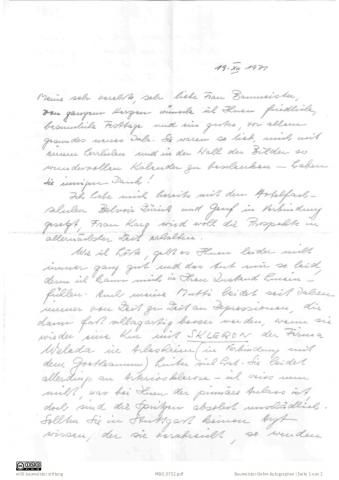 19. XII 1971
Meine sehr verehrte, sehr liebe Frau Baumeister,
von ganzem Herzen wünsche ich Ihnen friedliche,
besinnliche Festtage und ein gutes, vor allem
gesundes neues Jahr. Sie waren so lieb, mich mit
Ihren Zeilen und in der Wahl der Bilder so
wundervollen Kalender zu beschenken – haben
Sie innigen Dank!
Ich habe mich bereits mit den Hotelfach-
schulen Belvoir Zürich und Genf in Verbindung
gesetzt, Frau Karg wird wohl die Prospekte in
allernächster Zeit erhalten.
Wie ich höre, geht es Ihnen leider nicht
immer ganz gut und das tut mir so leid,
denn ich kann mich in Ihren Zustand hinein-
fühlen. Auch meine Mutti leidet seit Jahren
immer von Zeit zu Zeit an Depressionen, die
dann fast schlagartig besser werden, wenn sie
wieder eine Kur mit SKLERON der Firma
Weleda in Arlesheim (in Verbindung mit
dem Goetheanum) hinter sich hat. Sie leidet
allerdings an Arteriosklerose – ich weiss nun
nicht, was bei Ihnen der primäre Anlass ist
doch sind die Spritzen absolut unschädlich.
Sollten Sie in Stuttgart keinen Arzt
wissen, der sie verabreicht, so wenden
willi baumeister stiftung
Baumeister-Dehm Autographen | Seite 1 von 2